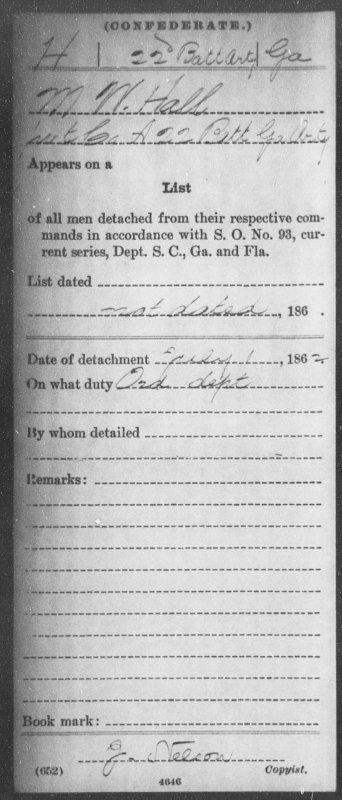 (CONFEDERATE.)
H | 22d Batt Art'y | Ga
M. W. Hall
Co. A 22 Batt Ga Arty
Appears on a
List
of all men detached from their respective com-
mands in accordance with S. O. No. 93, cur-
rent series, Dept. S. C., Ga. and Fla.
List dated
not dated, 186 .
Date of detachment July 1, 1862
On what duty Ord dept
By whom detailed
Remarks:
Book mark:
J. Nelson
(652) Copyist.
4646